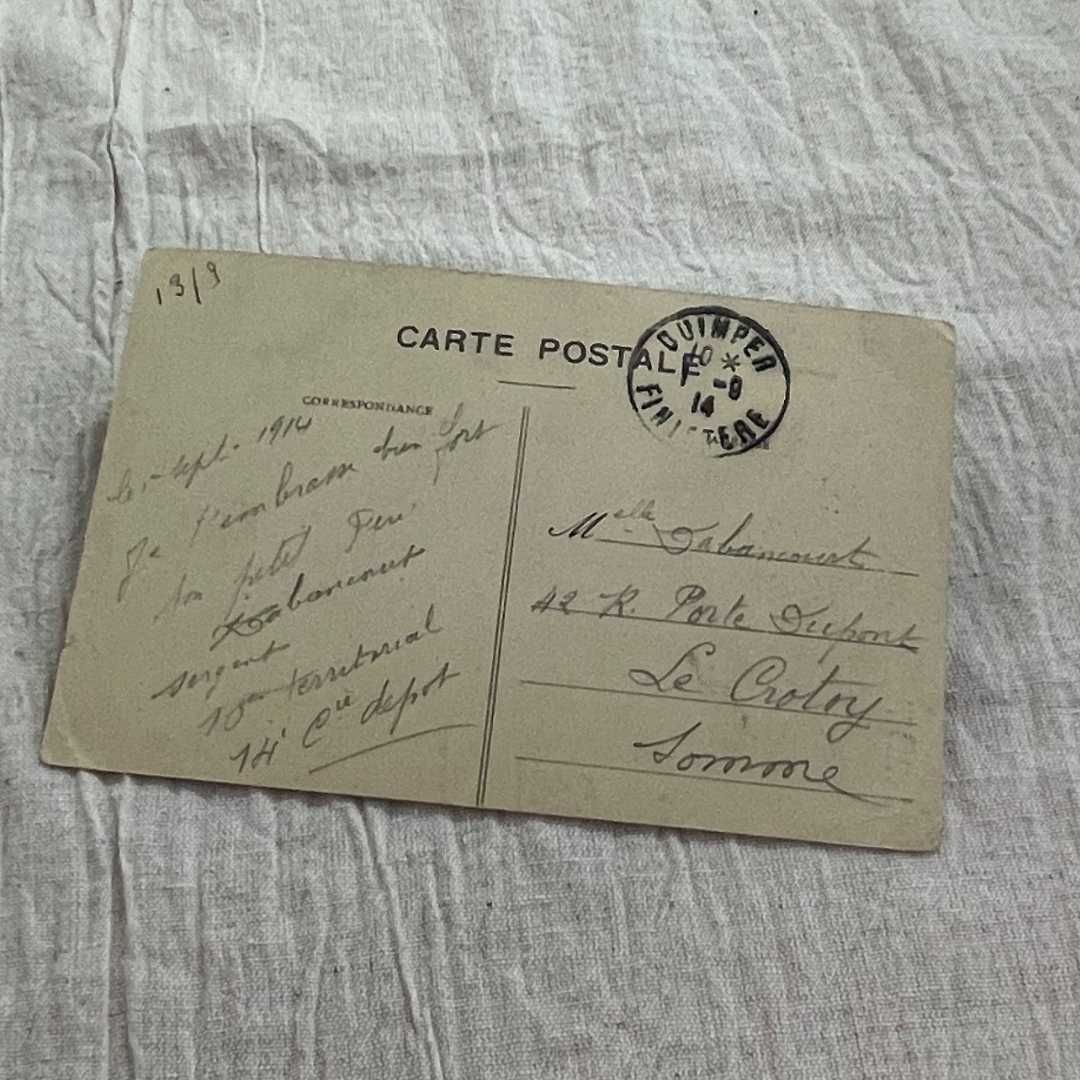 13/9
CARTE POSTALE
CORRESPONDANCE
QUIMPER
10 *
-9
14
FINISTERE
le - sept. 1914
Je t'embrasse bien fort
Ton petit Père
Dabancourt
sergent
territorial
14e Cie depot
Melle Dabancourt
42 R. Porte Dupont
Le Crotoy
Somme